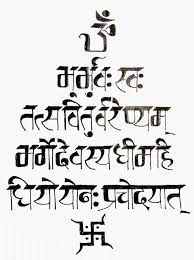 ॐ
भूर्भुवः स्वः
तत्सवितुर्वरेण्यम्
भर्गो देवस्य धीमहि
धियो यो नः प्रचोदयात्